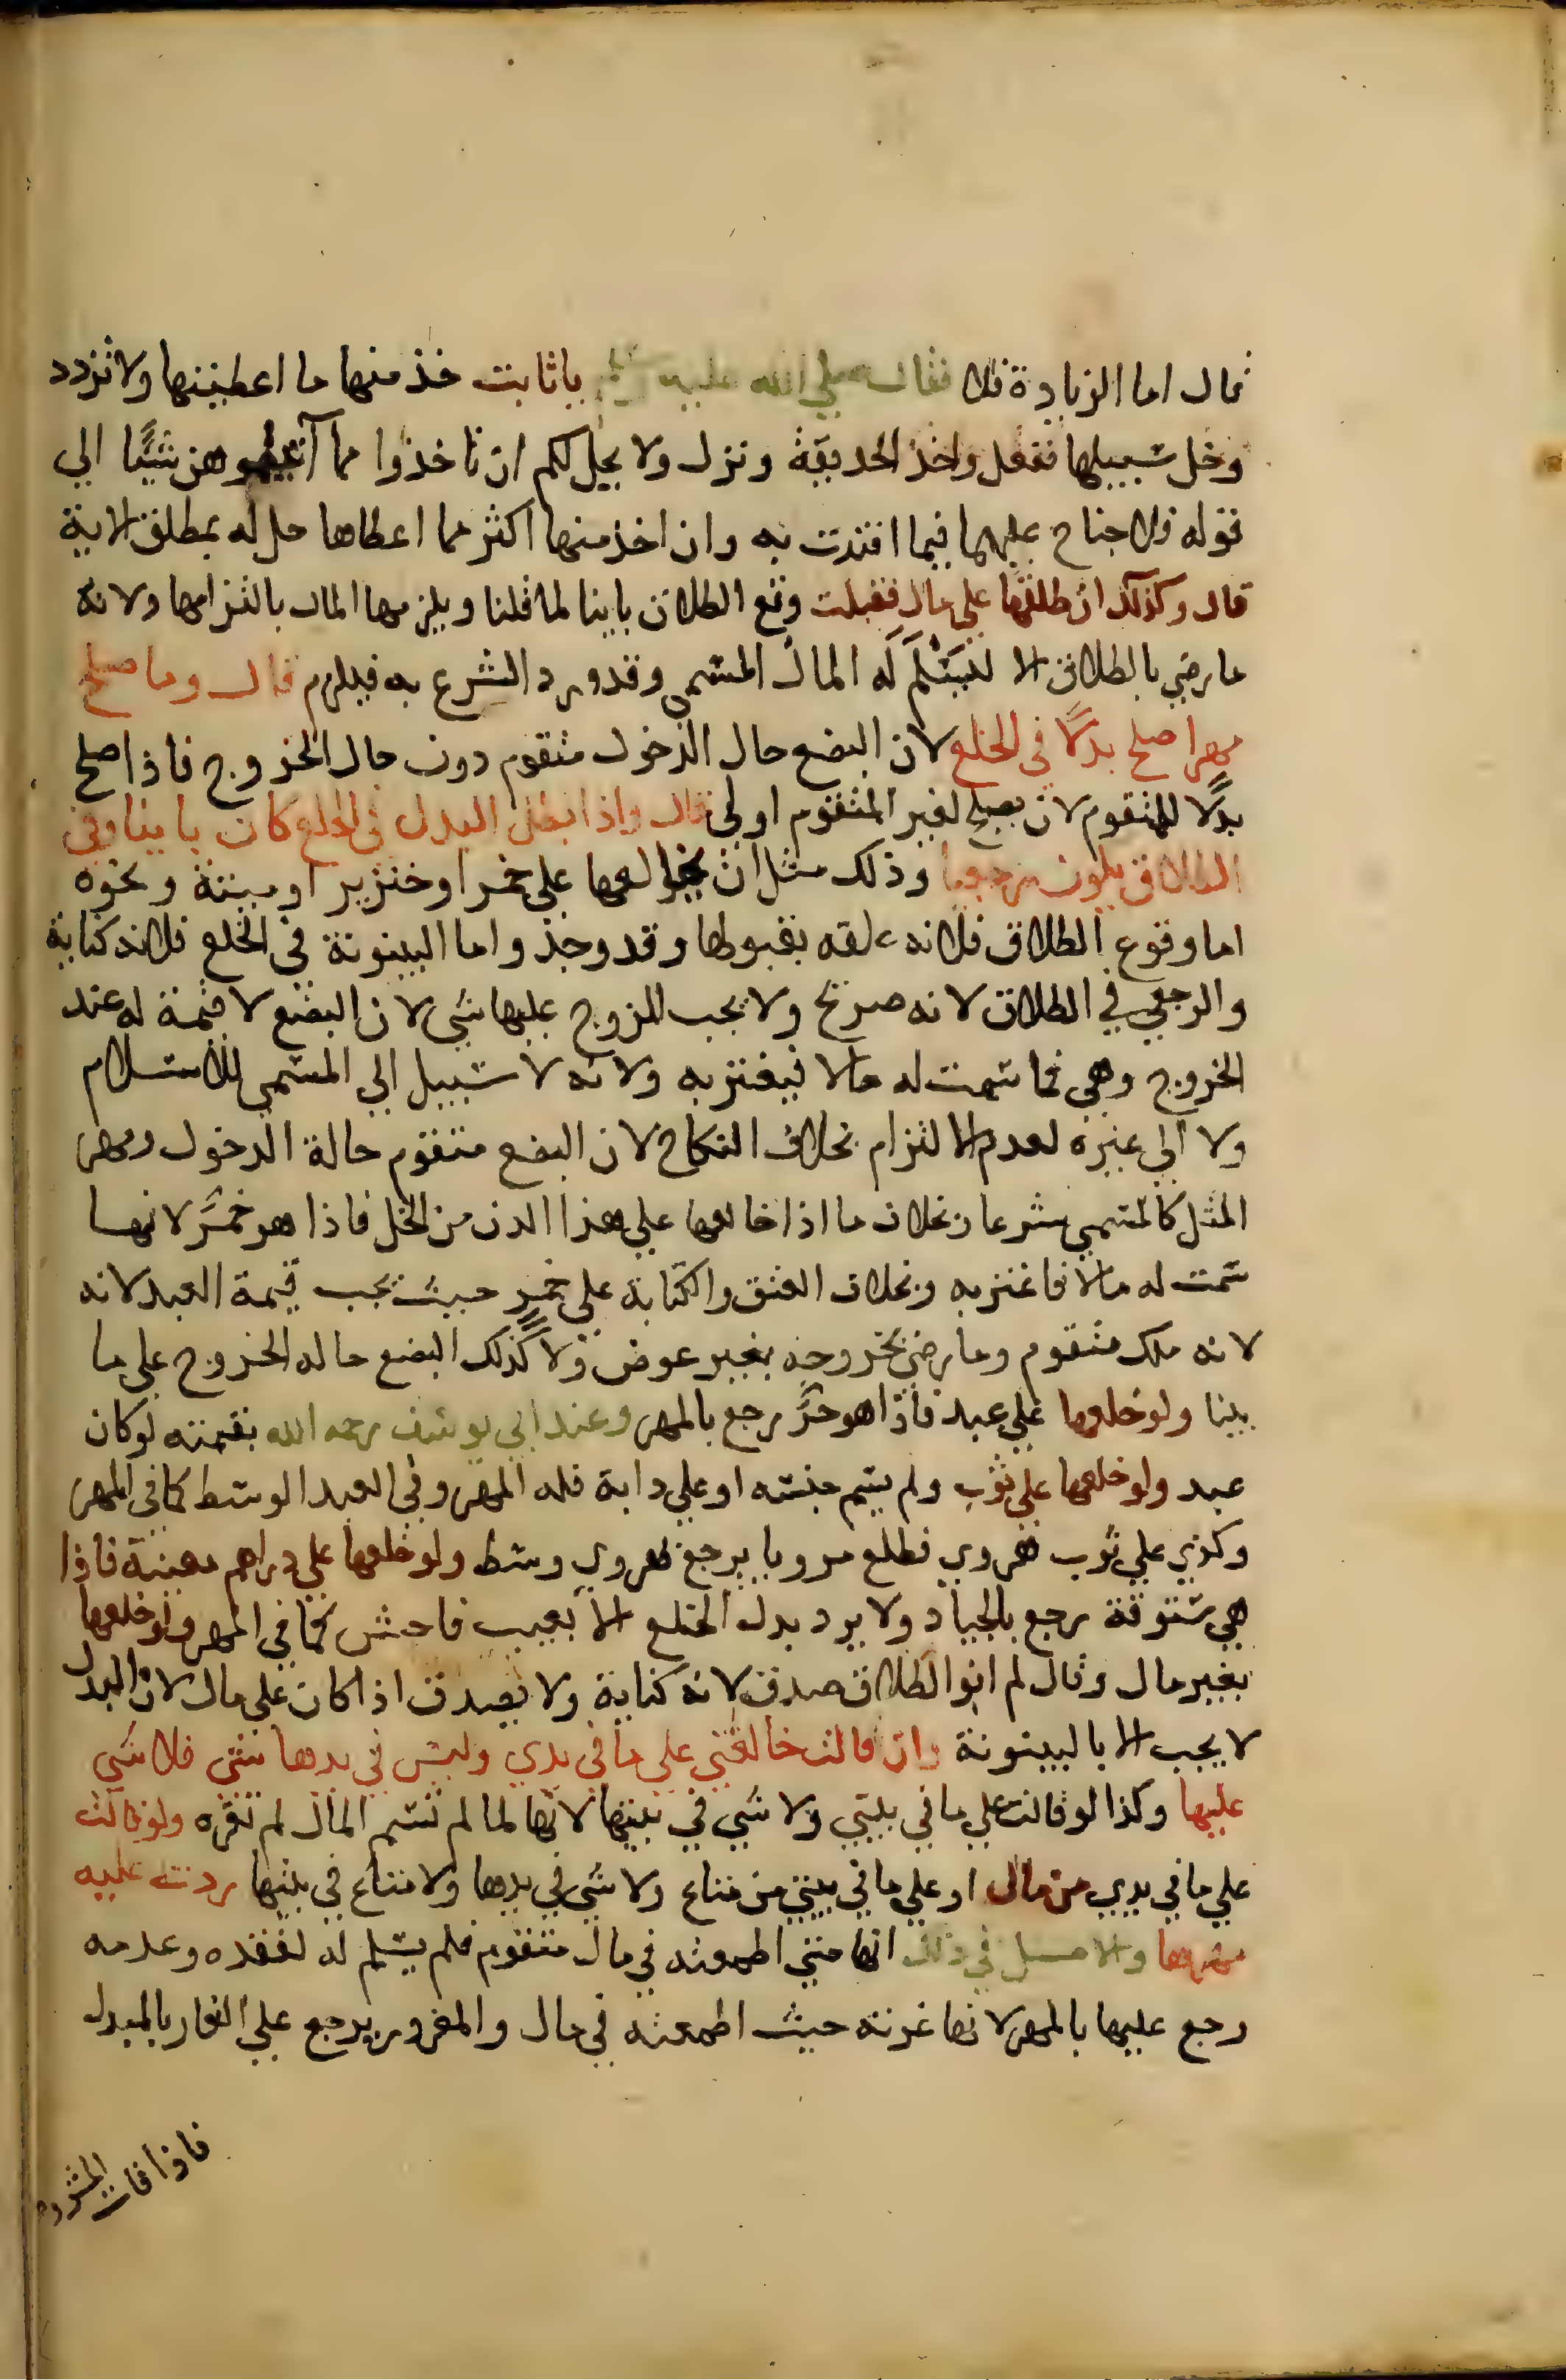 فقال اما الزيادة فلا فقال صلى الله عليه وسلم يا ثابت خذ منها ما اعطيتها ولا تزدد
وخل سبيلها ففعل واخذ الحديقة ونزل ولا يحل لكم ان تاخذوا مما آتيتموهن شيًا الي
قوله فلا جناح عليهما فيما افتدت به وان اخذ منها اكثر مما اعطاها حل له بمطلق الاية
قال وكذلك ان طلقها علي مال فقبلت وقع الطلاق باينا لما قلنا ويلزمها المال بالتزامها ولانه
ما رضي بالطلاق الا ليَسْلَمَ لَه المال المسمى وقد ورد الشرع به فيلزم قال وما صلح
مهرا صلح بدلًا في الخلع لان البضع حال الدخول متقوم دون حال الخروج فاذا صلح
بدلًا للمتقوم لان يصلح لغير المتقوم اولي قال واذا بطل البدل في الخلع كان باينا وفي
الطلاق يكون رجعيا وذلك مثل ان يخالعها علي خمر او خنزير او ميتة ونحوه
اما وقوع الطلاق فلانه علقه بقبولها وقد وجد واما البينونة في الخلع فلانه كناية
والرجعي في الطلاق لانه صريح ولا يجب للزوج عليها شي لان البضع لا قيمة له عند
الخروج وهي فما سمت له مالا فيغتر به ولانه لا سبيل الي المسمى للاسلام
ولا الي غيره لعدم الالتزام بخلاف النكاح لان البضع متقوم حالة الدخول ومهر
المثل كالمسمى شرعا وبخلاف ما اذا خالعها علي هذا الدن من الخل فاذا هو خمرٌ لانها
سمت له مالا فاغتر به وبخلاف العتق والكتابة علي خمرٍ حيث يجب قيمة العبد لانه
لانه ملك متقوم وما رضي بخروجه بغير عوض ولا كذلك البضع حاله الخروج علي ما
بينا ولو خلعها علي عبد فاذا هو حرٌّ رجع بالمهر وعند ابي يوسف رحمه الله بقيمته لو كان
عبد ولو خلعها علي ثوب ولم يسم جنسه او علي دابة فله المهر وفي العبد الوسط كما في المهر
وكذي علي ثوب هروي فطلع مرويا يرجع بهروي وسط ولو خلعها علي دراهم معينة فاذا
هي ستوقة رجع بالجياد ولا يرد بدل الخلع الا بعيب فاحش كما في المهر ولو خلعها
بغير مال وقال لم انو الطلاق صدق لانه كناية ولا يصدق اذا كان علي مال لان البدل
لا يجب الا بالبينونة وان قالت خالعني علي ما في يدي وليس في يدها شي فلا شي
عليها وكذا لو قالت علي ما في بيتي ولا شي في بيتها لانها لما لم تسم المال لم تغره ولو قالت
علي ما في يدي من مال او علي ما في بيتي من متاع ولا شي في يدها ولا متاع في بيتها ردت عليه
مهرها والاصل في ذلك انها متي اطمعته في مال متقوم فلم يسلم له لفقده وعدمه
رجع عليها بالمهر لانها غرته حيث اطمعته في مال والمغرور يرجع علي الغار بالمبدل
فاذا فات المشروط